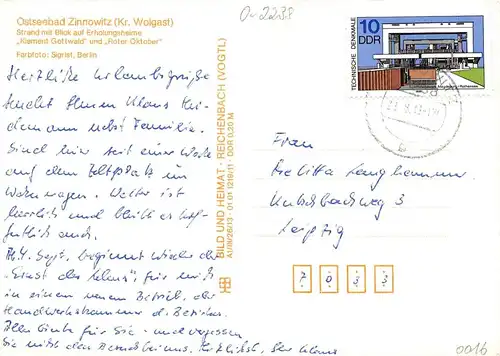 Ostseebad Zinnowitz (Kr. Wolgast)
Strand mit Blick auf Erholungsheime
„Klement Gottwald" und „Roter Oktober"
Farbfoto: Sigrist, Berlin
0-2238
Herzliche Urlaubsgrüße
sendet Ihnen Klaus
nebst Familie.
Sind hier seit einer Woche
auf dem Zeltplatz im
Wohnwagen. Wetter ist
herrlich und bleibt es hof-
fentlich auch.
Sept. beginnt wieder der
„Ernst des Lebens", für mich
in einem neuen Betrieb, der
Handwerkskammer d. Bezirkes.
Alles Gute für Sie - und vergessen
Sie nicht den Herzlichst, Ihr Klaus
BILD UND HEIMAT · REICHENBACH (VOGTL)
A1/III/26/13 · 01 01 1219/11 · DDR 0,20 M
TECHNISCHE DENKMALE
10
DDR
Frau
Melitta Langhammer
3
Leipzig
7 0 3 3
0016